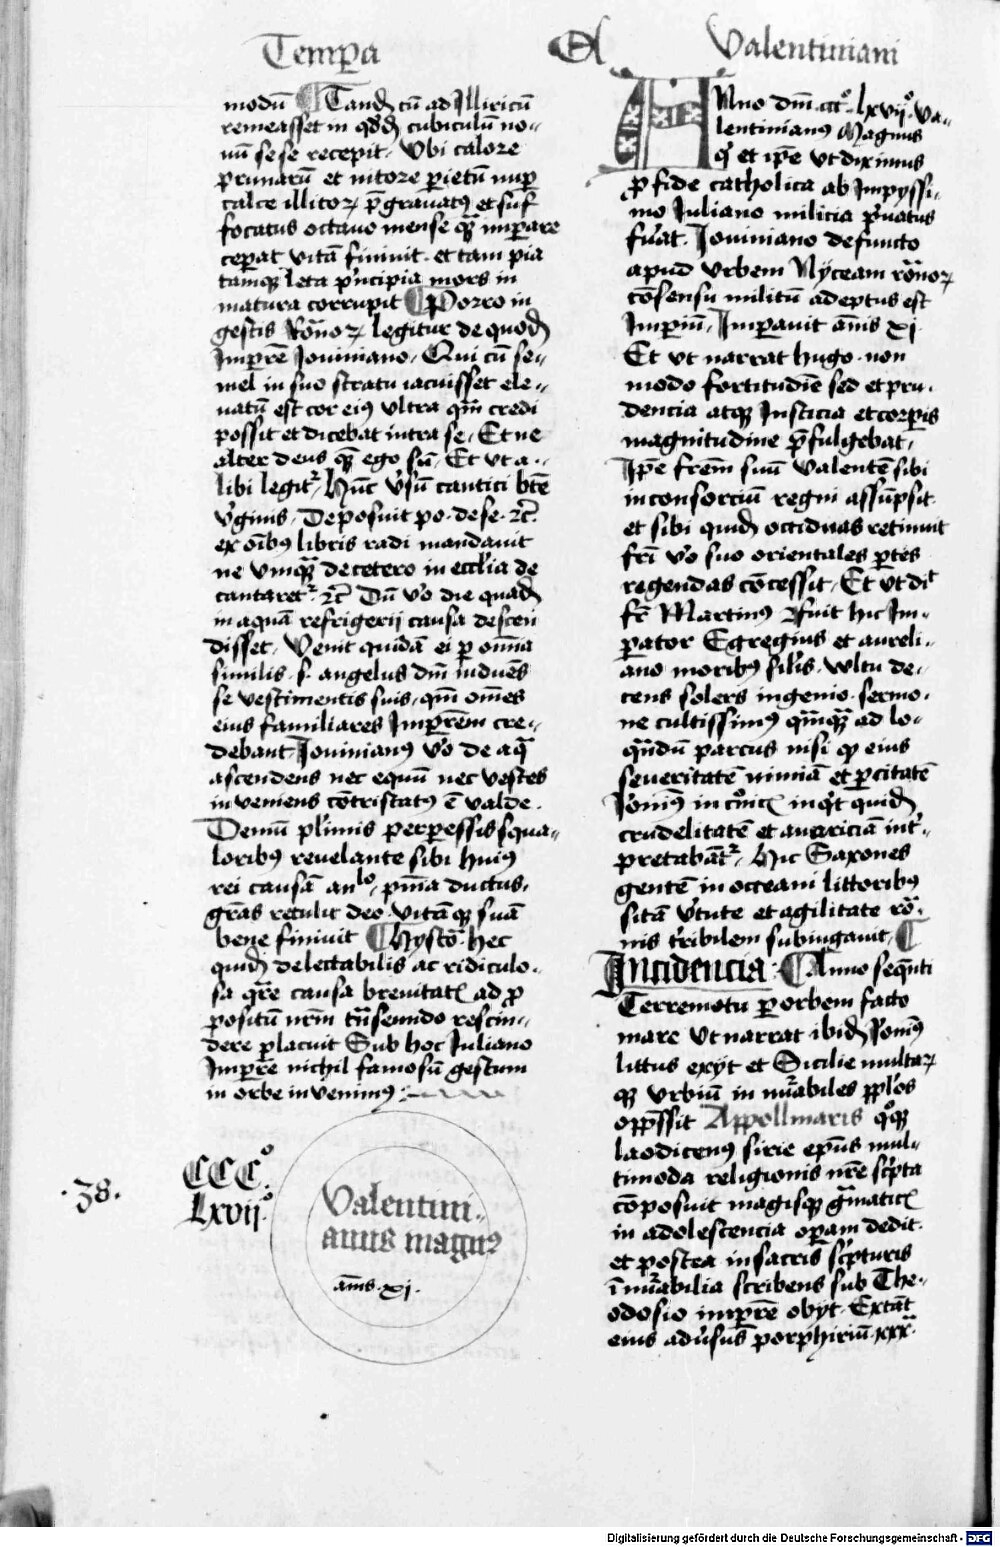 Tempa Et Valentiniani
modū Tandē cū ad Illiricū
remeasset in qdā cubiculū no-
uū sese recepit. Ubi calore
prunarū et nitore parietū nup
calce illitoꝝ pregrauatꝰ et suf
focatus octauo mense qz imperare
ceperat vitā finiuit. et tam pia
tamqz leta principia mors in
matura corrupit Porro in
gestis Romanoꝝ legitur de quodā
Impre Jouiniano. Qui cū se-
mel in suo stratu iacuisset ele-
uatū est cor eiꝰ vltra qm credi
possit et dicebat intra se. Est ne
alter deus qz ego sū. Et vt a-
libi legitʳ. Hūc vsū cantici bte
vginis. Deposuit po. de se. ⁊c̄.
ex oībꝰ libris radi mandauit
ne vmqz de cetero in ecclia de
cantaretʳ. ⁊c̄ Dū vo die quadā
in aquā refrigerij causa descen
disset. Venit quidā ei p omnia
similis. s. angelus dm̄ induēs
se vestimentis suis. qm̄ omēs
eius familiares Imprem cre-
debant. Jouinianꝰ vo de aqua
ascendens nec equū nec vestes
inueniens cōtristatꝰ ē valde.
Demū plimis perpessis squa-
loribꝰ reuelante sibi huiꝰ
rei causā anlo. pnia ductus.
grās retulit deo. vitāqz suā
bene finiuit Hystoria hec
quidē delectabilis ac ridiculo-
sa qre causa breuitatis ad p
positū nrm transeundo rescin-
dere placuit Sub hoc Juliano
Impre nichil famosū gestum
in orbe inuenimꝰ
.38. CCCº.
Lxvijº.
Valentini-
anus magnꝰ
annis .xj.
Anno dm̄ cccº. lxvijº. Va-
lentinianꝰ Magnus
q et ipe vt diximus
p fide catholica ab Impyssi-
mo Juliano milicia priuatus
fuerat. Jouiniano defuncto
apud vrbem Nyceam romanoꝝ
cōsensu militū adeptus est
Imperiū. Imperauit annis xj.
Et vt narrat hugo. non
modo fortitudīe sed et pru-
dencia atqz Justicia et corpis
magnitudine pfulgebat.
Ipe frem suū Valentē sibi
in consorciū regni assūpsit.
et sibi quidē occiduas retinuit
fri vo suo orientales ptes
regendas cōcessit. Et vt dit
fr Martinꝰ Fuit hic Im-
pator Egregius et aureli-
ano moribꝰ silis. vltu de-
cens solers ingenio. sermo-
ne cultissimꝰ qmqz ad lo-
qndū parcus nisi q eius
seueritatē nimiā et pcitatē
crudelitatē et auariciā int'-
pretabātʳ. Hic Saxones
gentē in occeani littoribꝰ
sitā vtute et agilitate ro-
nis tribilem subiugauit.
Incidencia. Anno seqnti
Terremotu p orbem facto
mare vt narrat ibidē
littus exyt et Sicilie multaꝝ
qz vrbiū in nuabiles pplos
oppssit Appollinaris qoqz
laodicenꝰ sirie epūs mul-
timoda religionis nre scpta
cōposuit magisqz gmaticꝭ
in adolescencia operam dedit.
et postea in sacris scpturis
ī nuabilia scribens sub The-
odosio impre obyt. Extāt
eius adusus porphiriū .xxx.